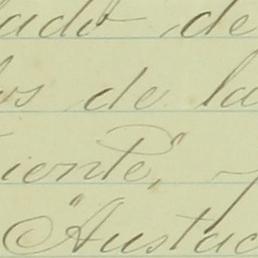 lado de
los de la
iente",
"Austac